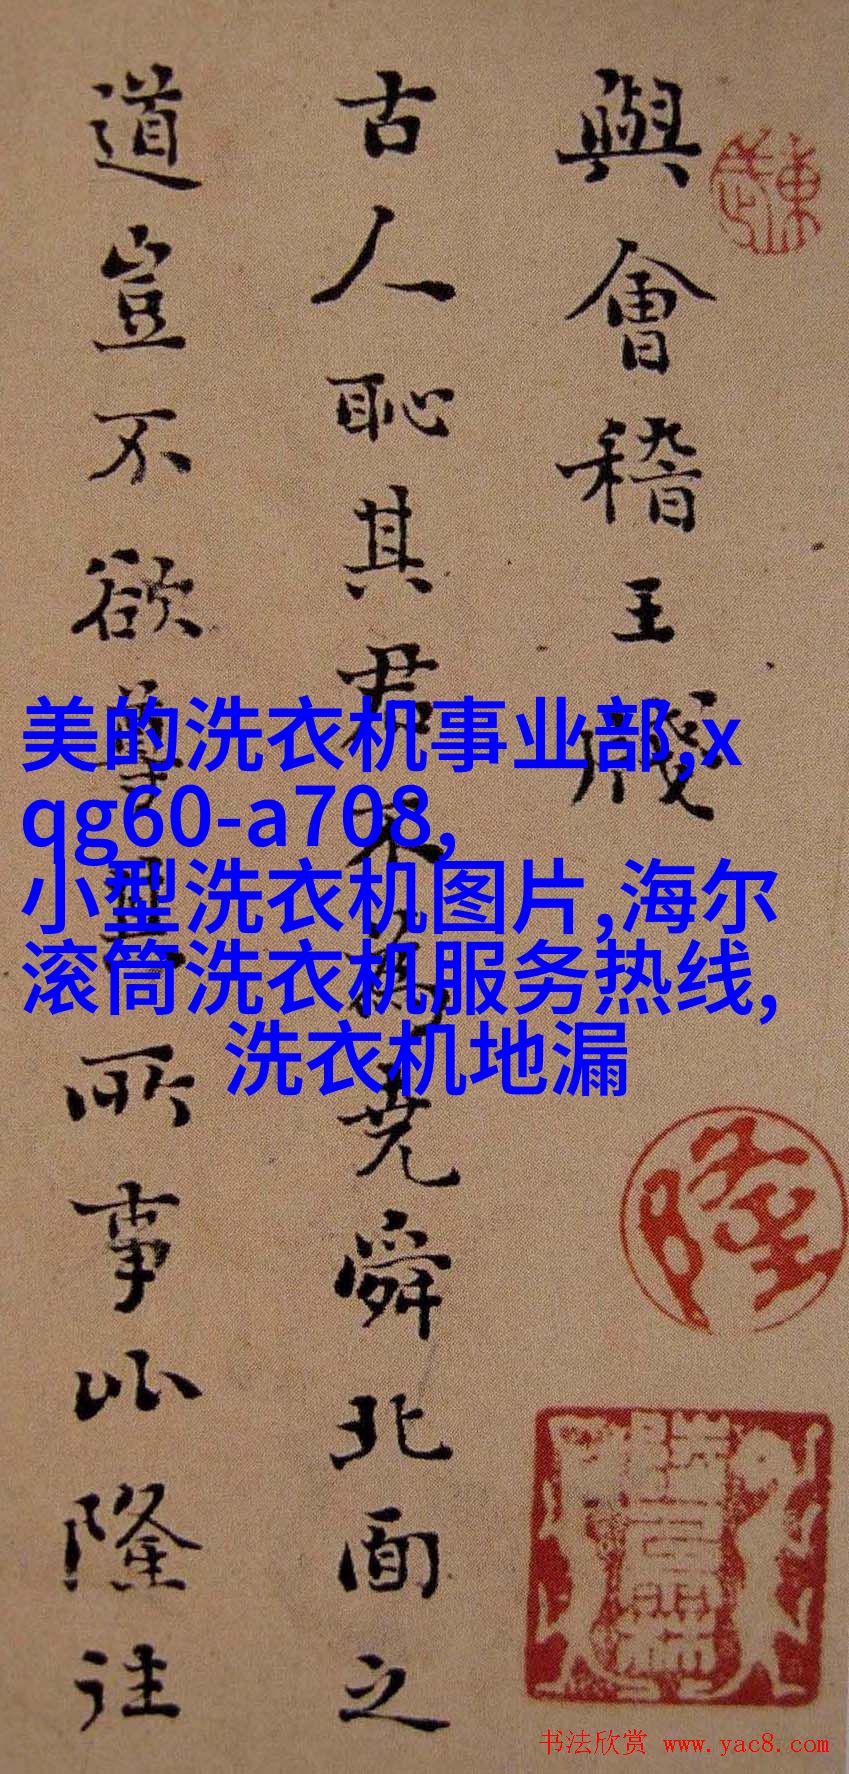 與會稽王牋
古人恥其君不為堯舜北面之
道豈不欲尊其所事比隆往
美的洗衣机事业部,x
qg60-a708,
小型洗衣机图片,海尔
滚筒洗衣机服务热线,
洗衣机地漏
隆
书法欣赏 www.yac8.com